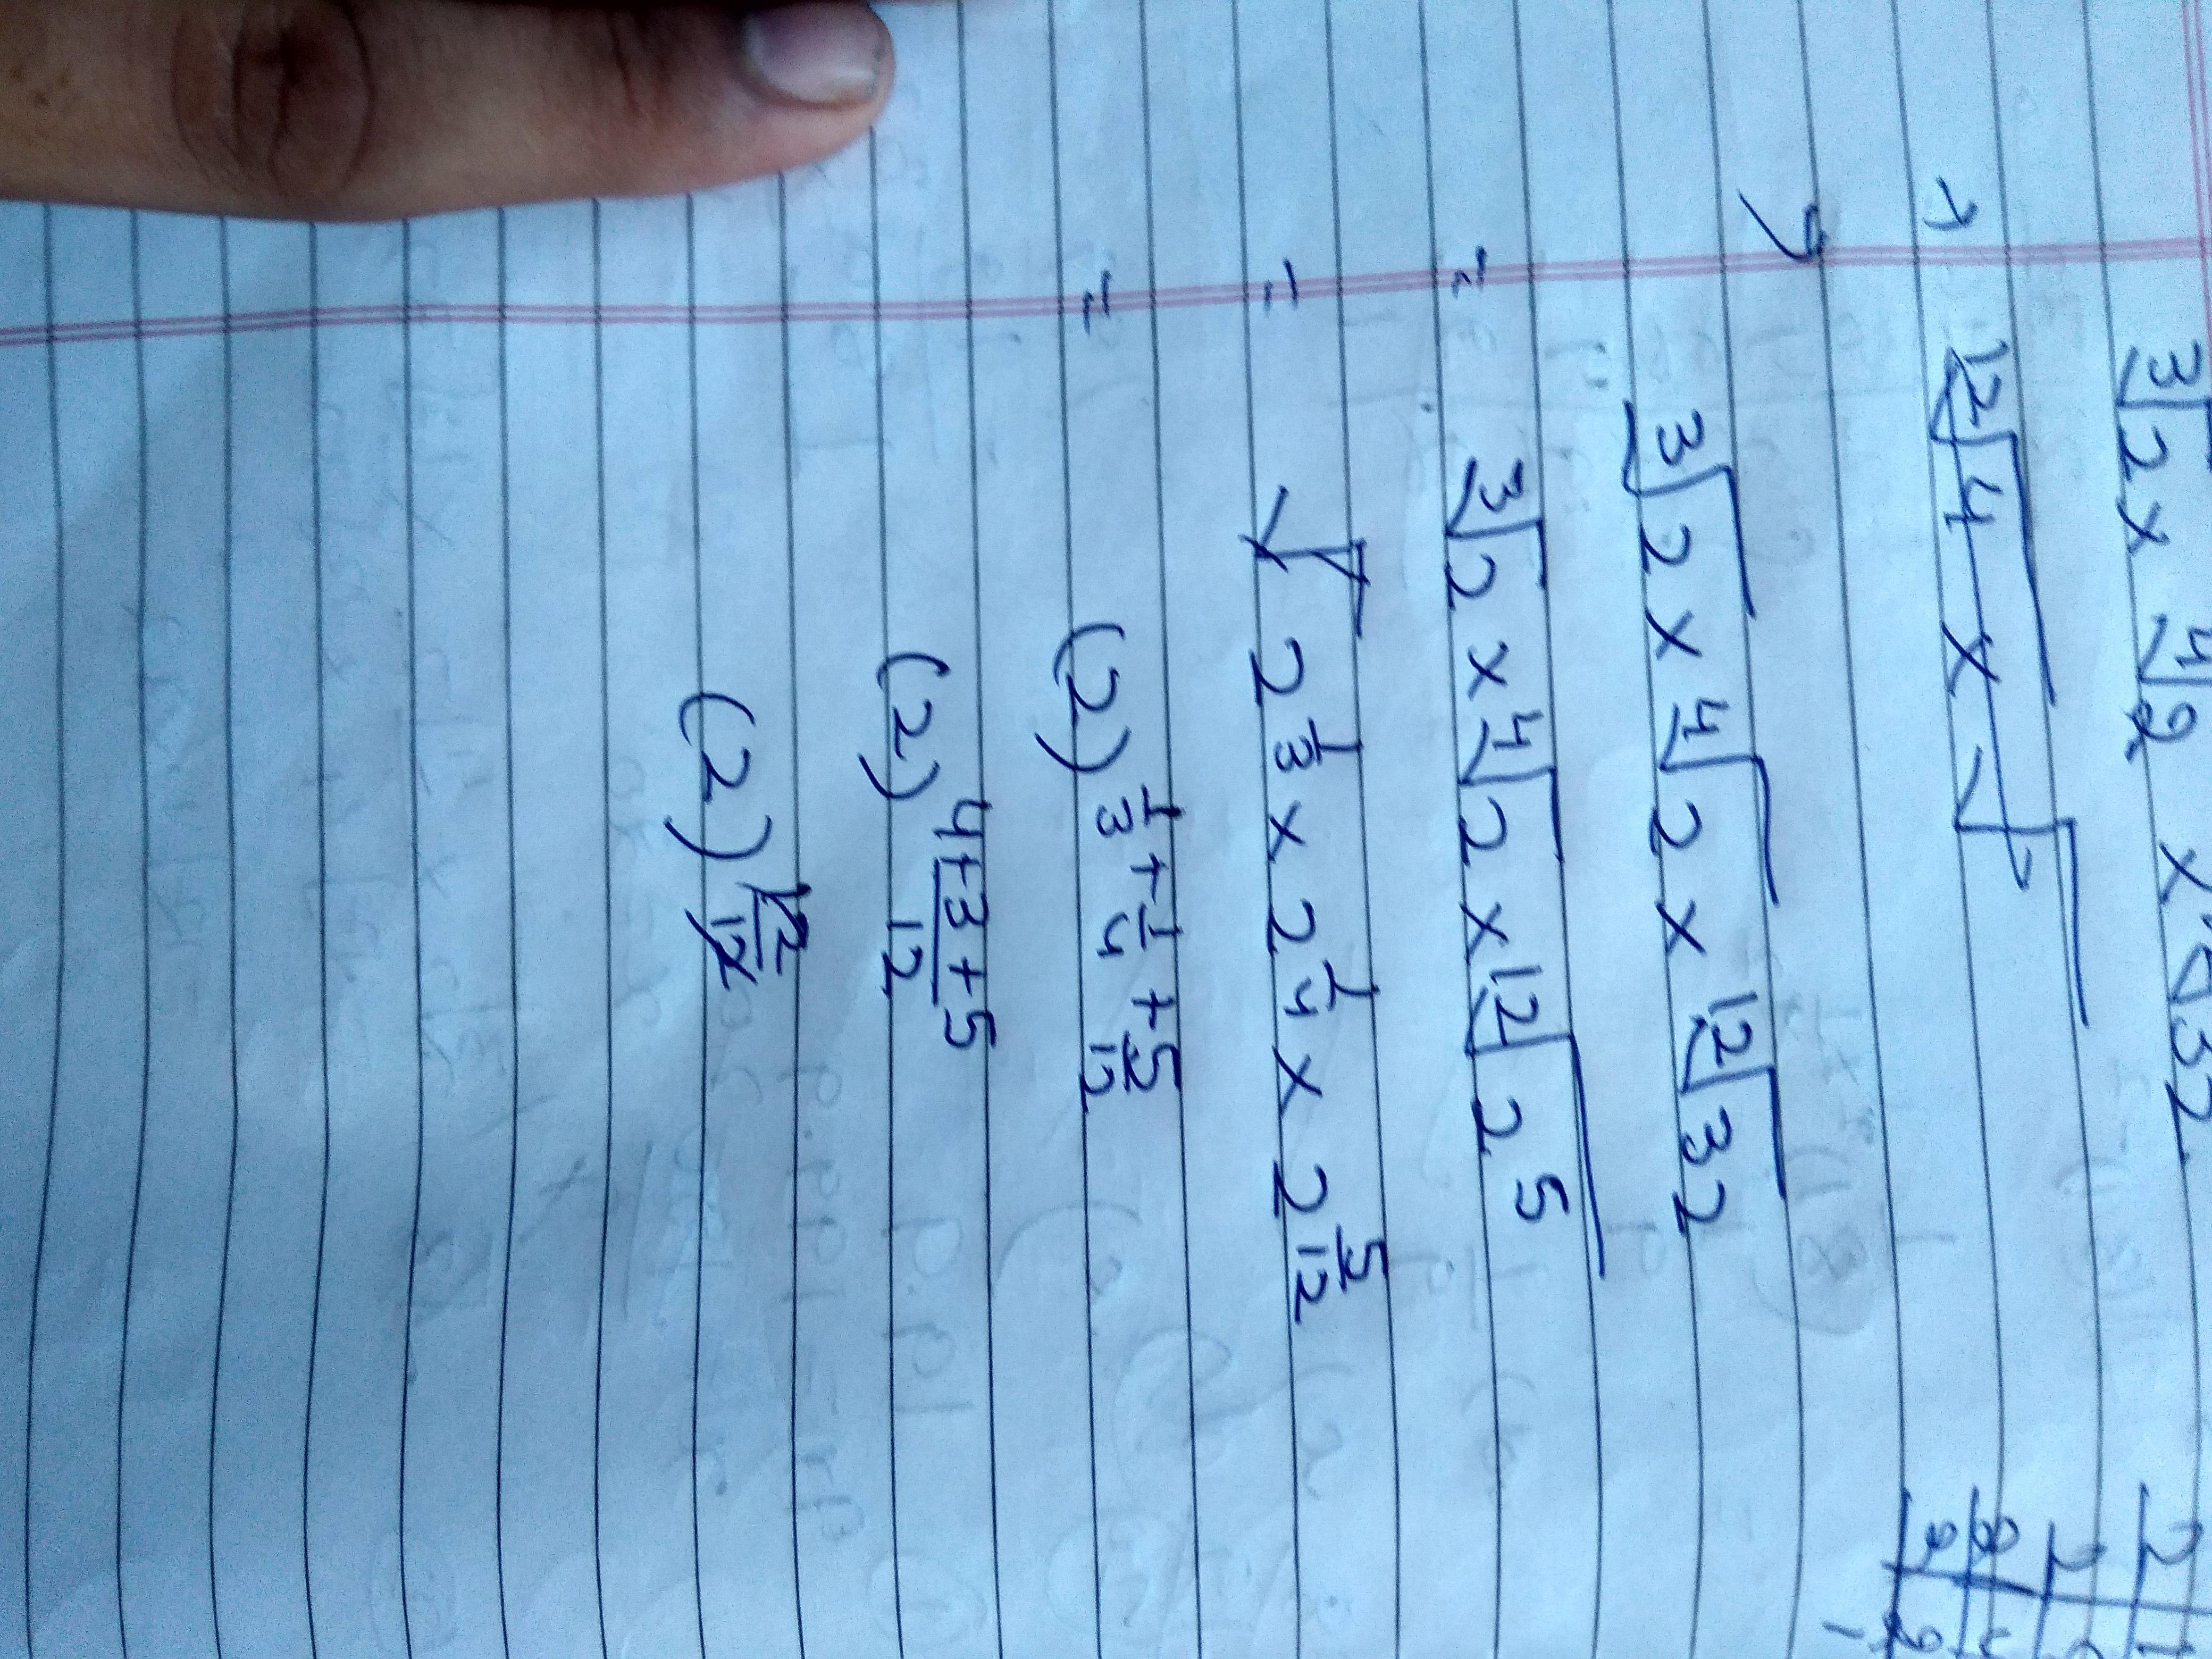 ∛2 × ∜2 × √32
¹²√4 × √
∛2 × ∜2 × ¹²√32
= ∛2 × ∜2 × ¹²√2⁵
= √ 2^(1/3) × 2^(1/4) × 2^(5/12)
= (2)^(1/3 + 1/4 + 5/12)
(2)^((4+3+5)/12)
(2)^(12/12)